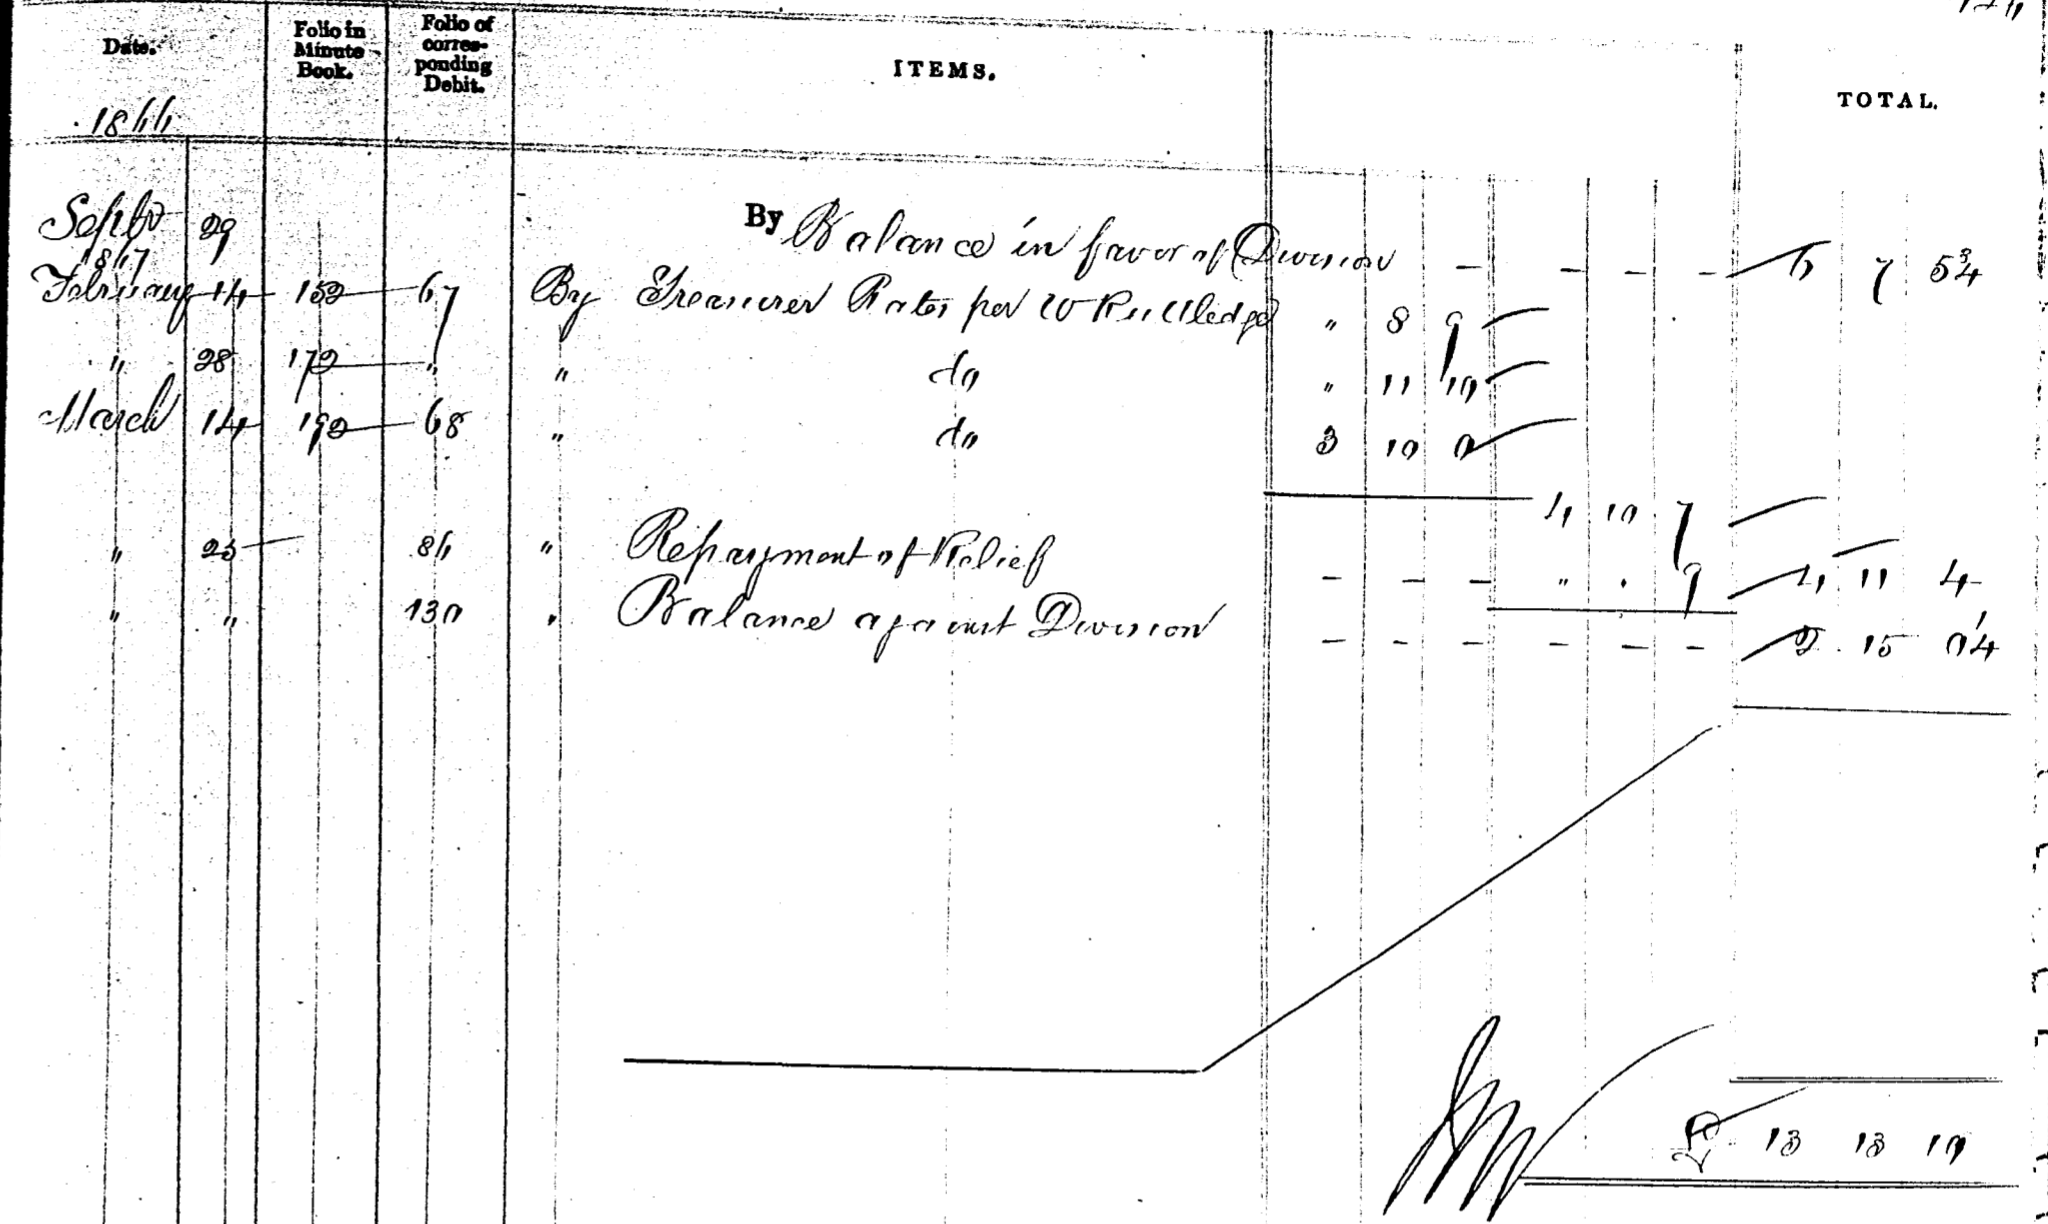 Date.
Folio in Minute Book.
Folio of corresponding Debit.
ITEMS.
TOTAL.
1866
Septr 29 By Balance in favor of Division - - - - 6 7 5¾
1867
February 14 152 67 By Treasurer Rates per W Ruttledge " 8 9
" 28 172 " " do " 11 10
March 14 192 68 " do 3 10 0
4 10 7
" 25 86 " Repayment of Relief - - - " . 9 4 11 4
" " 130 " Balance against Division - - - - - - 2 15 0¼
£ 13 13 10